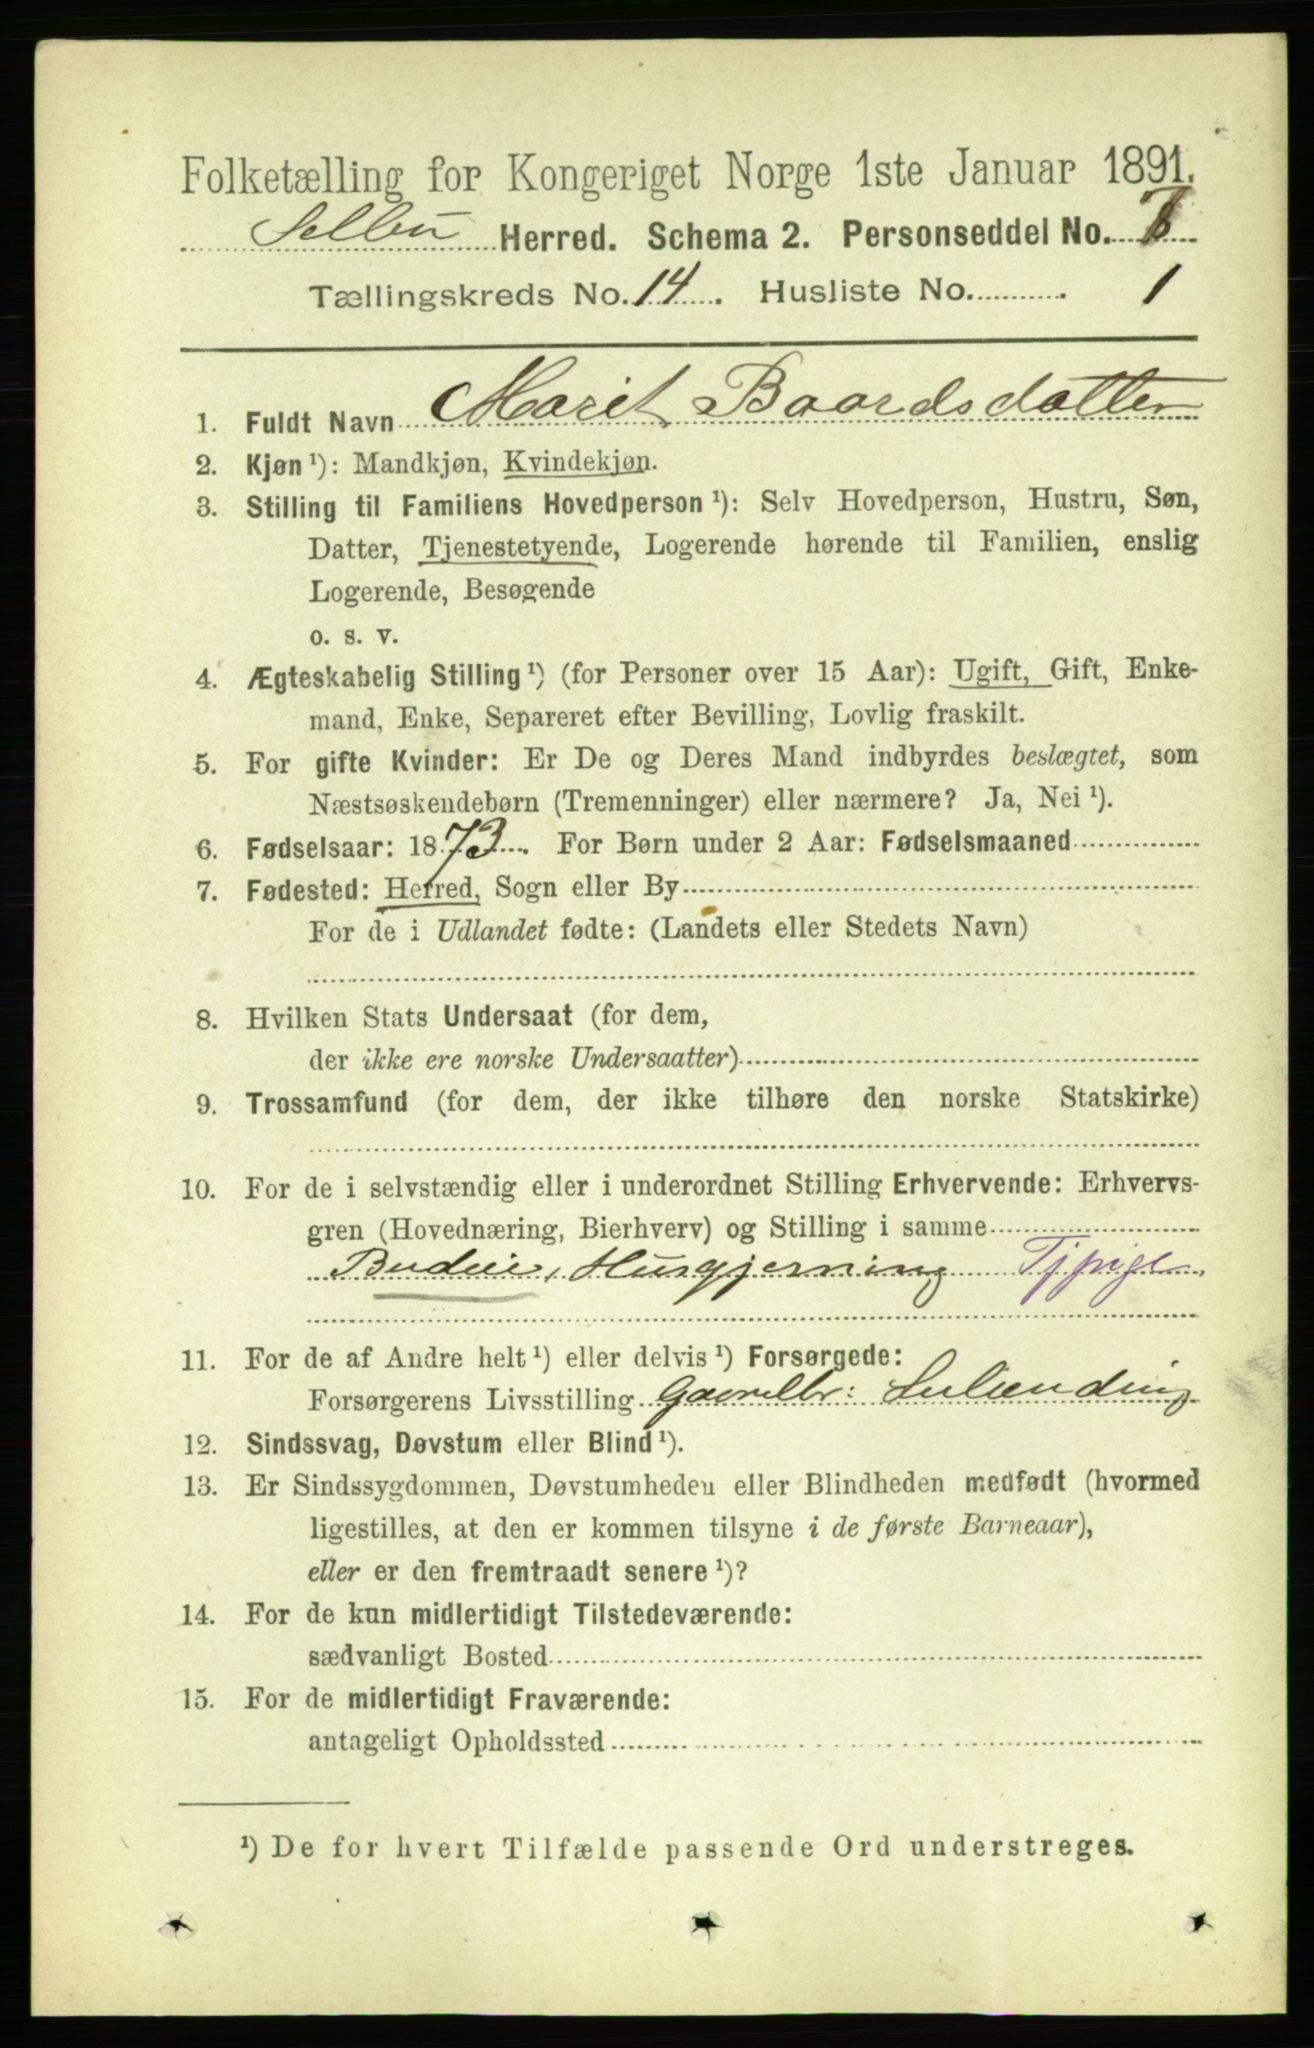 Folketælling for Kongeriget Norge 1ste Januar 1891.
Selbu Herred. Schema 2. Personseddel No. 7
Tællingskreds No. 14. Husliste No. 1
1. Fuldt Navn Marit Baardsdatter
2. Kjøn ¹): Mandkjøn, Kvindekjøn.
3. Stilling til Familiens Hovedperson ¹): Selv Hovedperson, Hustru, Søn,
Datter, Tjenestetyende, Logerende hørende til Familien, enslig
Logerende, Besøgende
o. s. v.
4. Ægteskabelig Stilling ¹) (for Personer over 15 Aar): Ugift, Gift, Enke-
mand, Enke, Separeret efter Bevilling, Lovlig fraskilt.
5. For gifte Kvinder: Er De og Deres Mand indbyrdes beslægtet, som
Næstsøskendebørn (Tremenninger) eller nærmere? Ja, Nei ¹).
6. Fødselsaar: 1873. For Børn under 2 Aar: Fødselsmaaned
7. Fødested: Herred, Sogn eller By
For de i Udlandet fødte: (Landets eller Stedets Navn)
8. Hvilken Stats Undersaat (for dem,
der ikke ere norske Undersaatter)
9. Trossamfund (for dem, der ikke tilhøre den norske Statskirke)
10. For de i selvstændig eller i underordnet Stilling Erhvervende: Erhvervs-
gren (Hovednæring, Bierhverv) og Stilling i samme
Budeie, Husgjerning Tjpige
11. For de af Andre helt ¹) eller delvis ¹) Forsørgede:
Forsørgerens Livsstilling Gaardbr:
12. Sindssvag, Døvstum eller Blind ¹).
13. Er Sindssygdommen, Døvstumheden eller Blindheden medfødt (hvormed
ligestilles, at den er kommen tilsyne i de første Barneaar),
eller er den fremtraadt senere ¹)?
14. For de kun midlertidigt Tilstedeværende:
sædvanligt Bosted
15. For de midlertidigt Fraværende:
antageligt Opholdssted
¹) De for hvert Tilfælde passende Ord understreges.